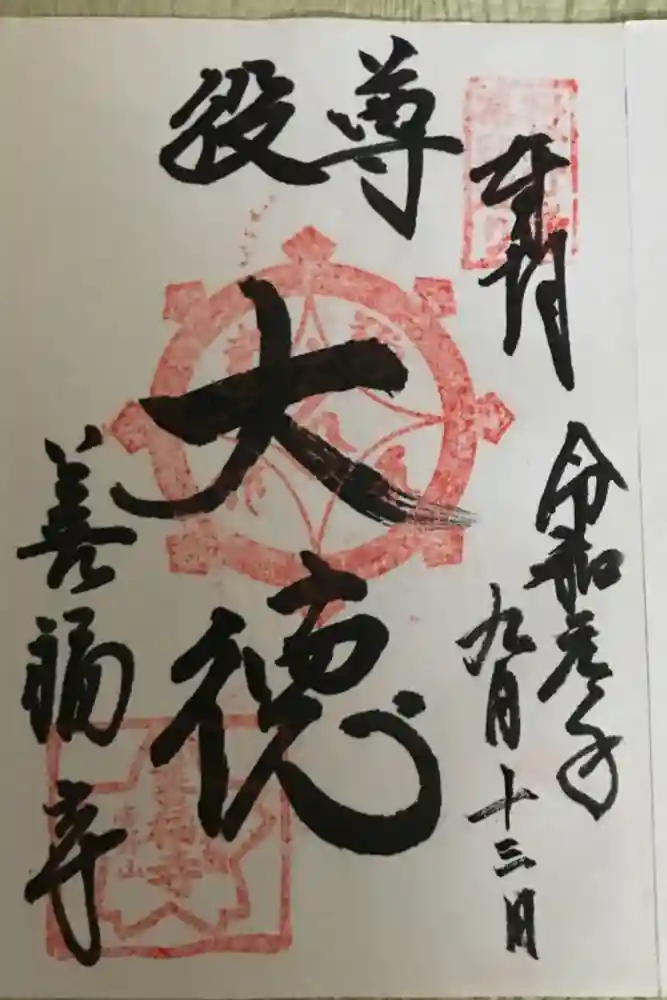 奉拝
令和元年
九月十三日
尊役
大徳
善福寺